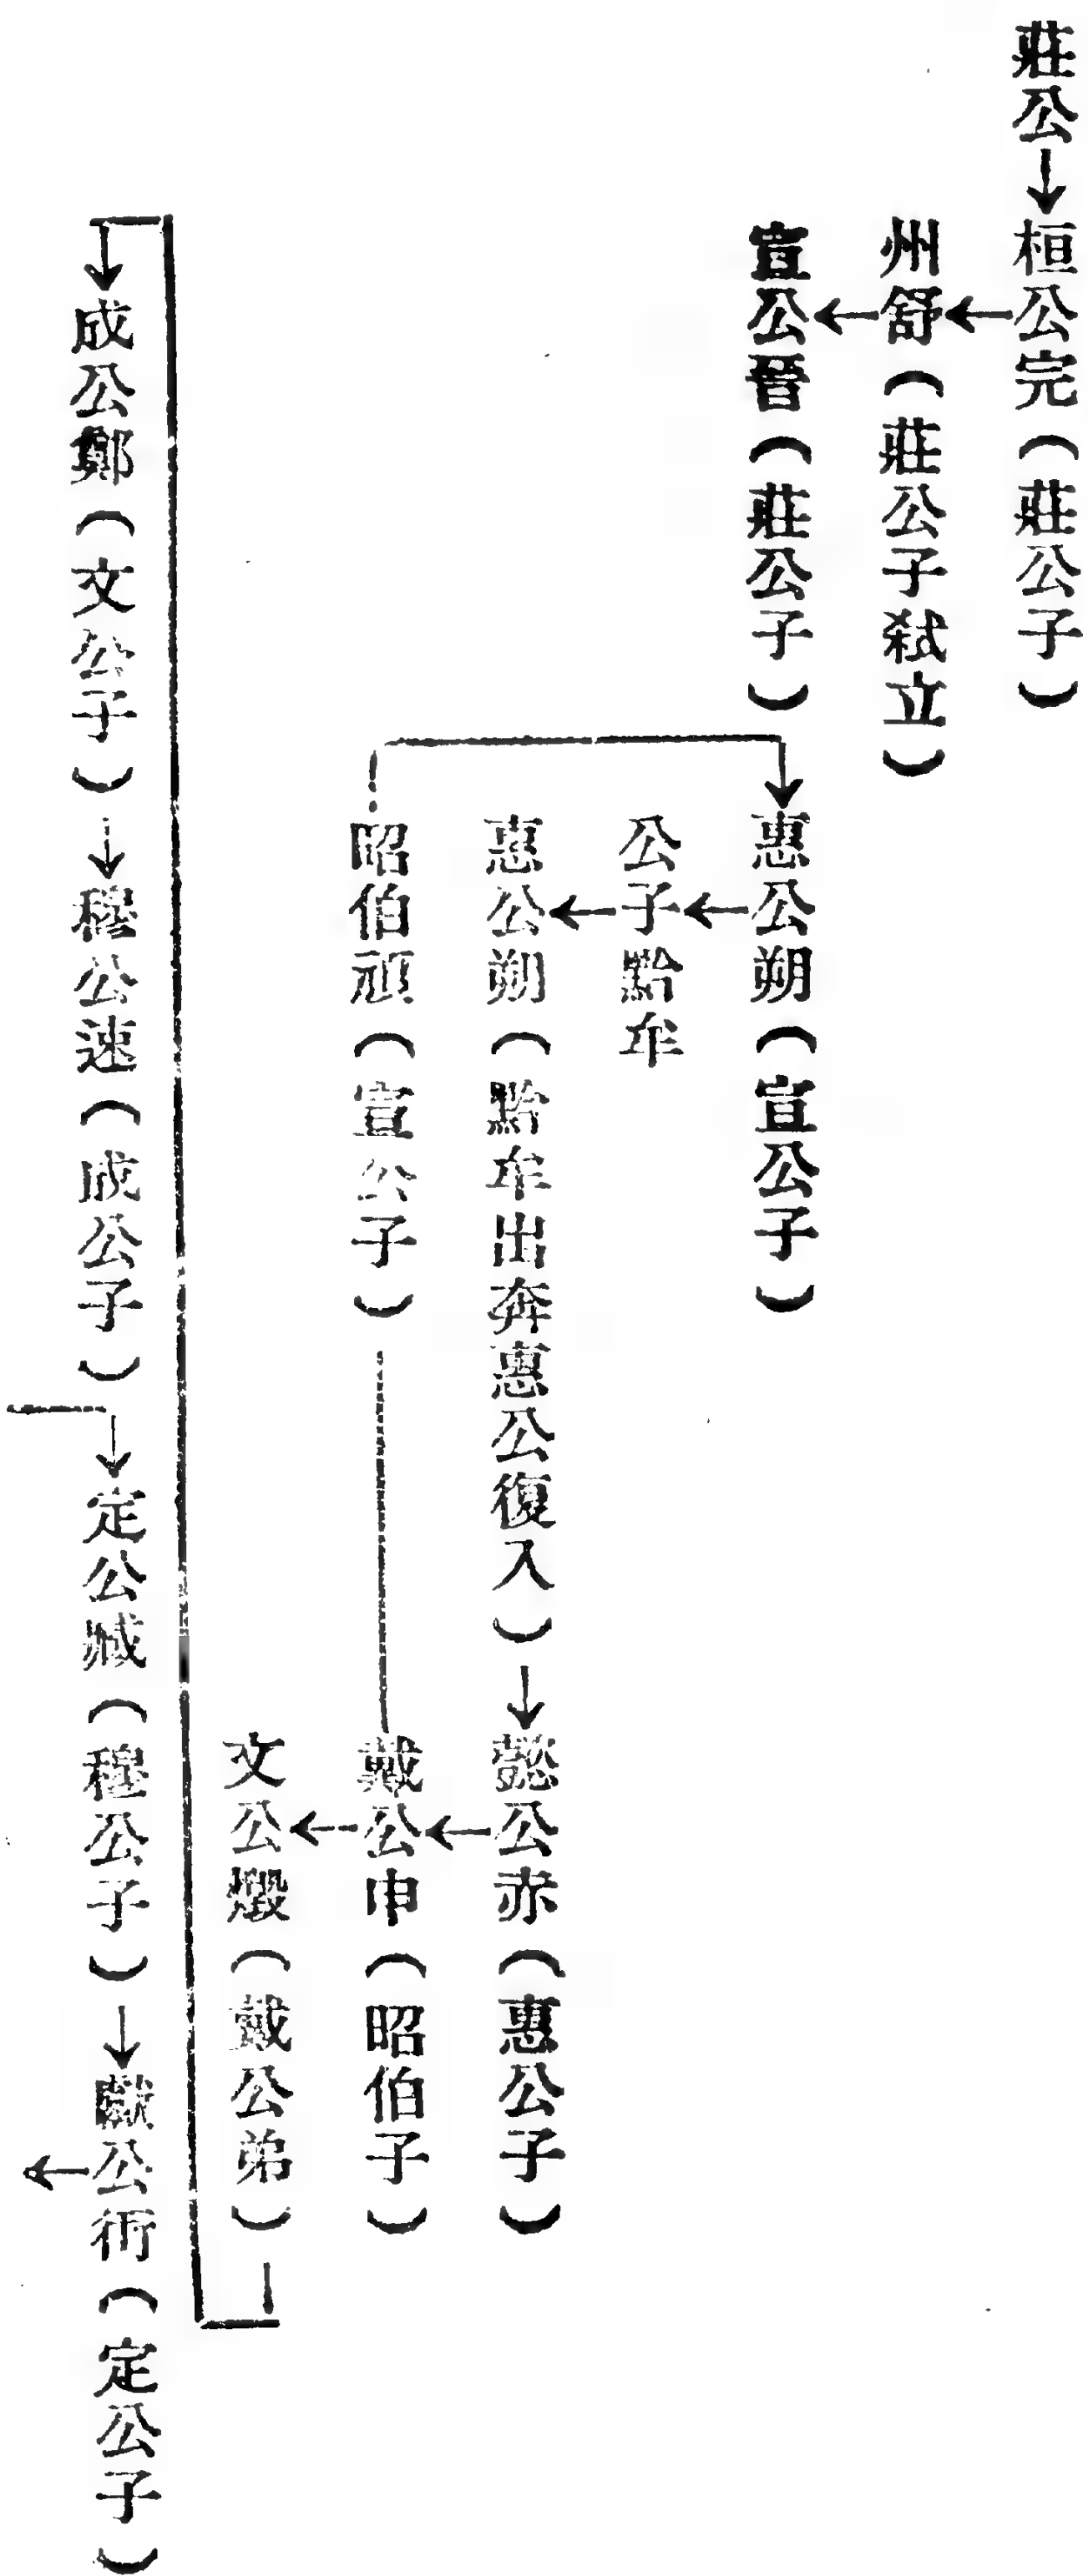 莊公→桓公完(莊公子)
州舒(莊公子弒立)
宣公晉(莊公子)→惠公朔(宣公子)
公子黔牟
惠公朔(黔牟出奔惠公復入)→懿公赤(惠公子)
昭伯頑(宣公子)戴公申(昭伯子)
文公燬(戴公弟)
→成公鄭(文公子)→穆公速(成公子)→定公臧(穆公子)→獻公衎(定公子)